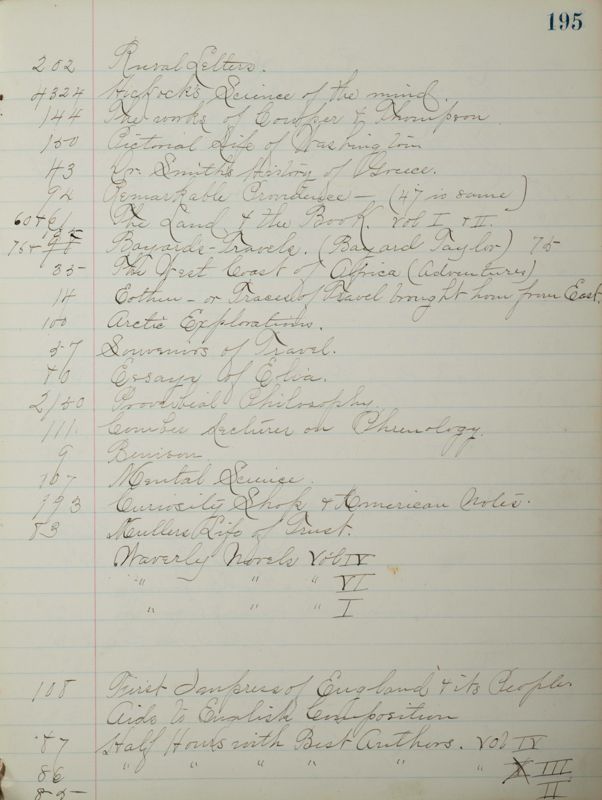 195
202 Rural Letters.
4324 Hickock's Science of the mind.
144 The works of Cowper & Thompson
150 Pictorial Life of Washington
43 Dr. Smith's History of Greece.
94 Remarkable Providence - (47 is same)
60 & 61 The Land & the Book. Vol I & II.
75 & Bayards-Travels. (Bayard Taylor) 75
35 The West Coast of Africa (Adventures)
14 Eothen - or Traces of Travel brought hom from East.
100 Arctic Explorations.
37 Souvenirs of Travel.
40 Essays of Elia.
2/50 Proverbial Philosophy.
111. Combes Lectures on Phrenology.
9 Benison
107 Mental Science.
193 Curiosity Shop & American Notes.
53 Mullers Life of Trust.
Waverly Novels Vol IV
" " " VI
" " " I
108 First Impress of England & its People
Aids to English Composition
87 Half Hours with Best Authors. Vol IV
86 " " " " " " III
85 II